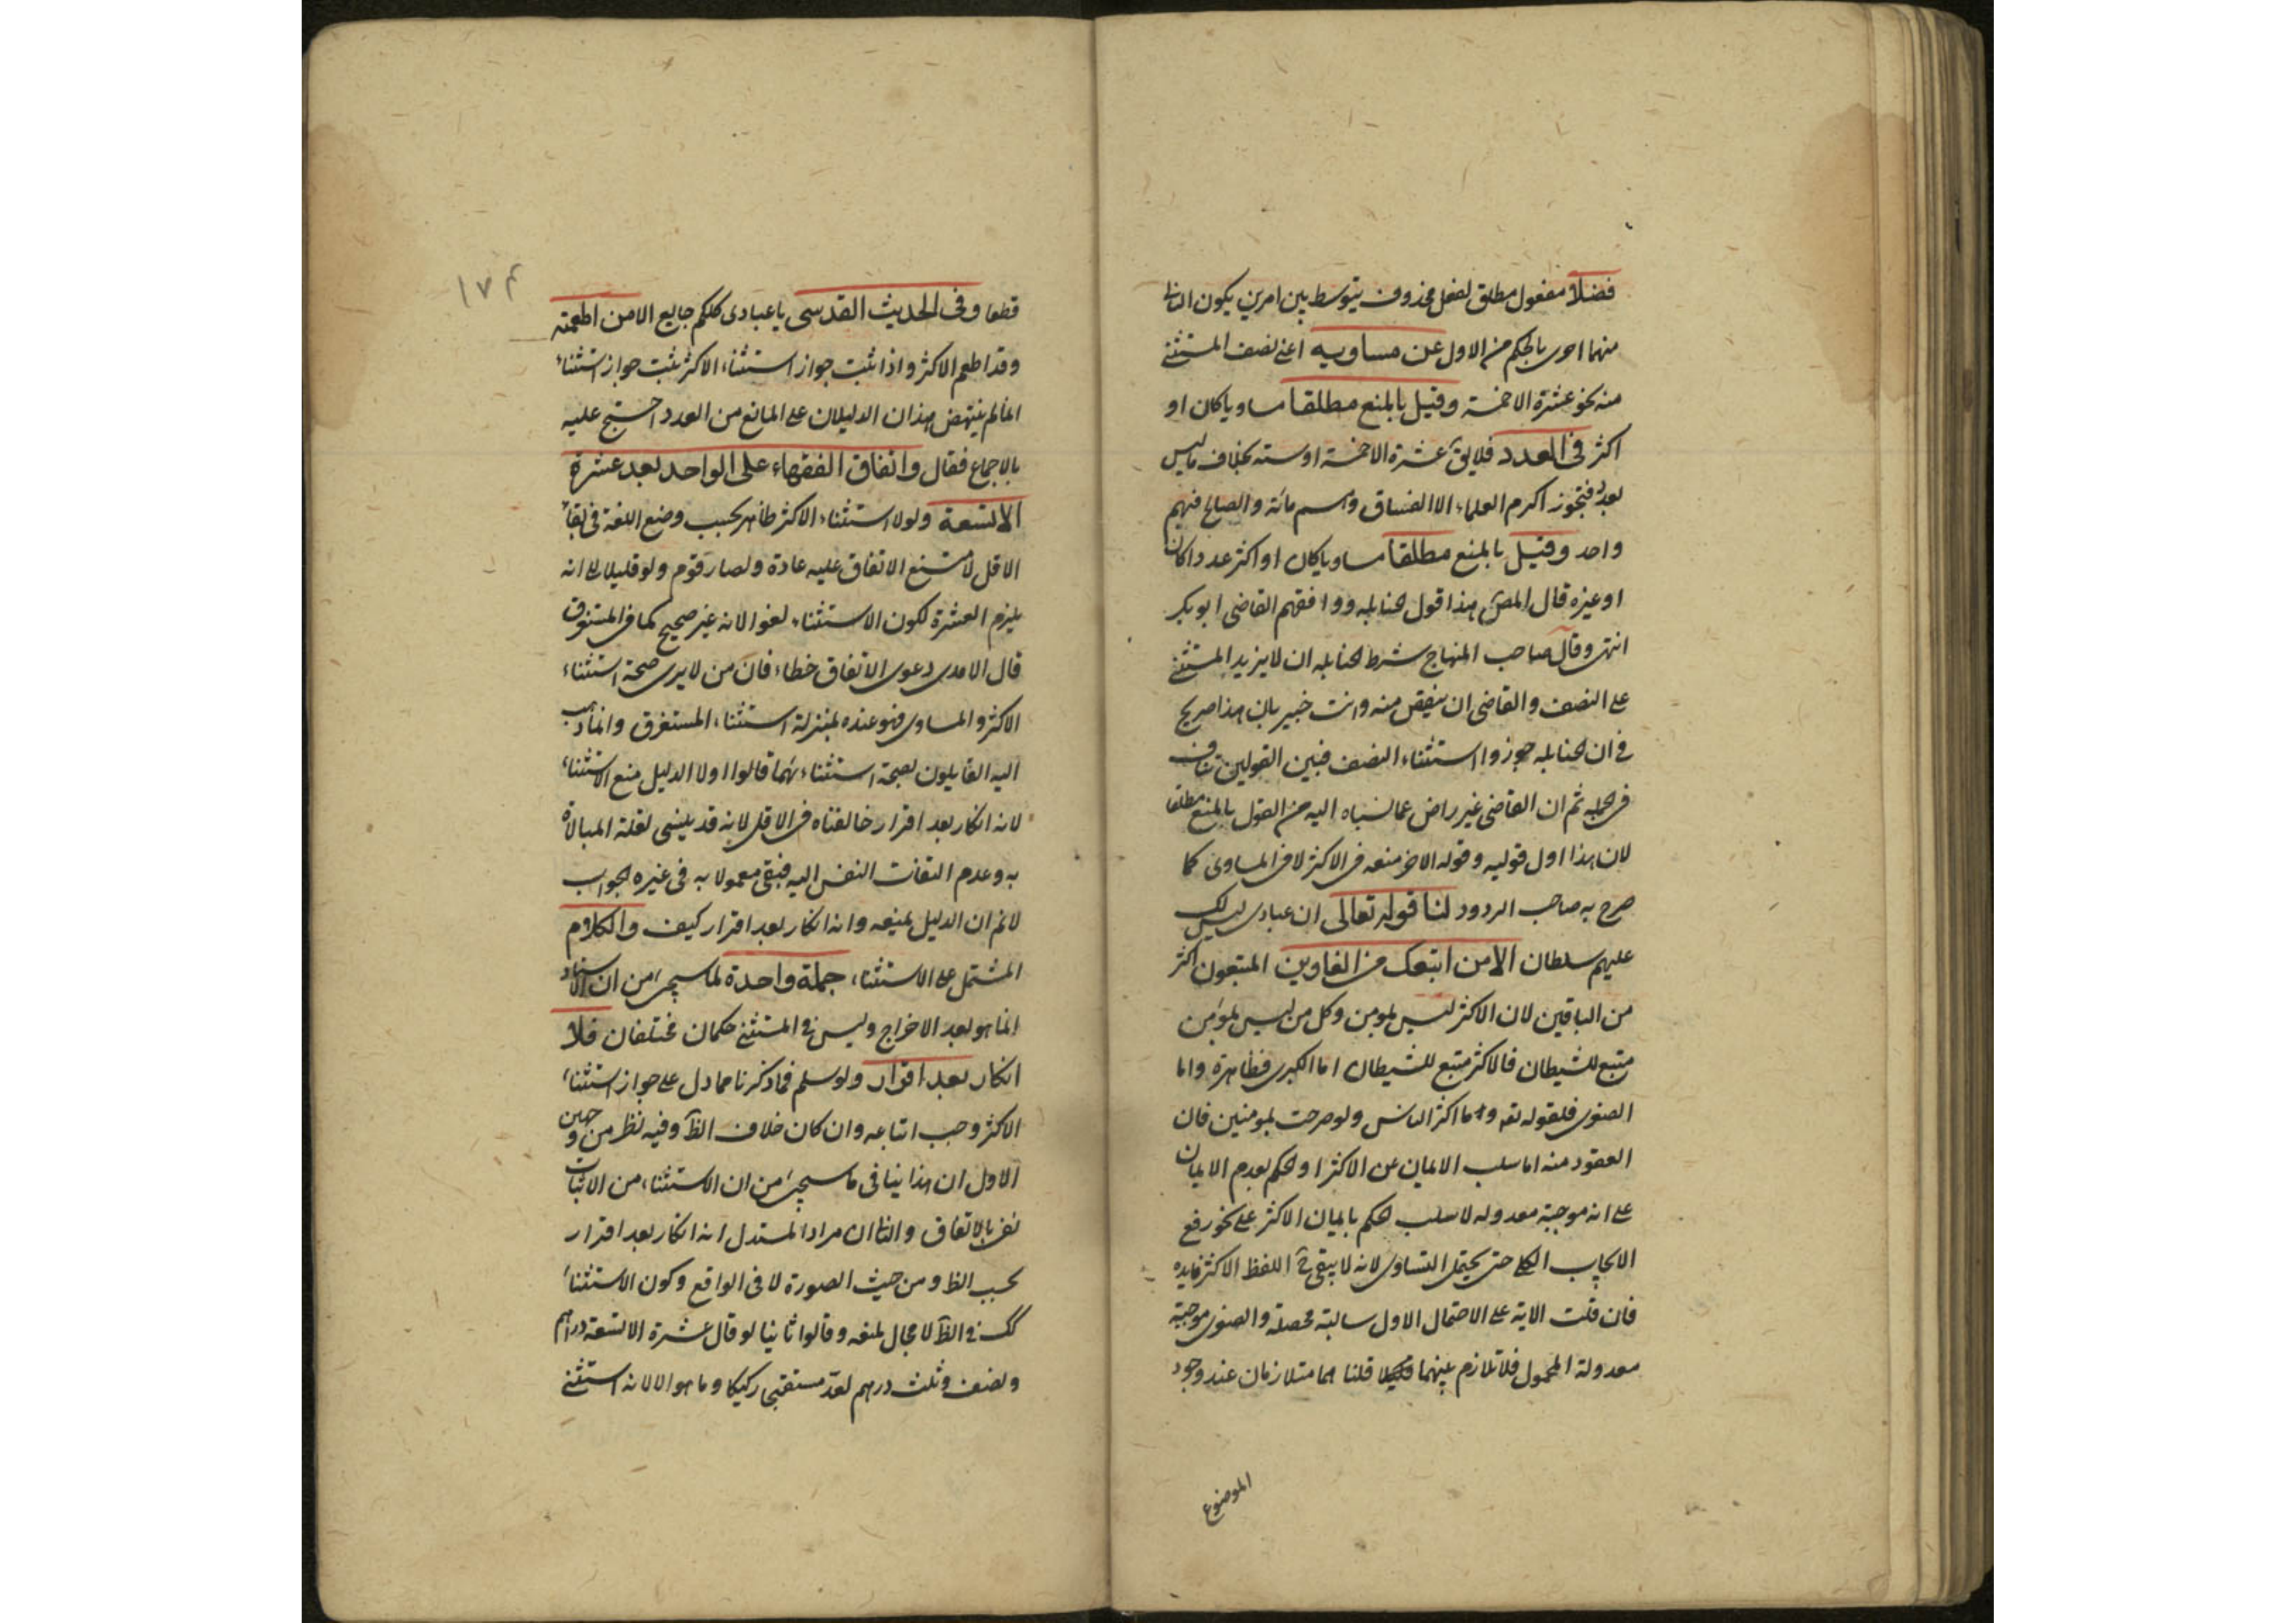 فضلا مفعول مطلق لفعل محذوف يتوسط بين امرين يكون الثانى
منهما احرى بالحكم من الاول عن مساويه اعنى نصف المستثنى
منه نحو عشرة الا خمسة وقيل بالمنع مطلقا مساويا كان او
اكثر فى العدد فلا يق عشرة الا خمسة او ستة بخلاف ما ليس
بعدد فتجوز اكرم العلماء الا الفساق وهم مائة والصالح فيهم
واحد وقيل بالمنع مطلقا مساويا كان او اكثر عددا كان
او غيره قال المص هذا قول الحنابلة ووافقهم القاضى ابو بكر
انتهى وقال صاحب المنهاج شرط الحنابلة ان لا يزيد المستثنى
على النصف والقاضى ان ينقص منه وانت خبير بان هذا صريح
فى ان الحنابلة جوزوا استثناء النصف فبين القولين تناف
ثم ان القاضى غير راض عما نسباه اليه من القول بالمنع مطلقا
لان هذا اول قوليه وقوله الاخر منعه فى الاكثر لا فى المساوى كما
صرح به صاحب الردود لنا قوله تعالى ان عبادى ليس لك
عليهم سلطان الا من اتبعك من الغاوين المتبعون اكثر
من الباقين لان الاكثر ليس بمومن وكل من ليس بمؤمن
متبع للشيطان فالاكثر متبع للشيطان اما الكبرى فظاهرة واما
الصغرى فلقوله تعه وما اكثر الناس ولو حرصت بمومنين فان
المقصود منه اما سلب الايمان عن الاكثر او الحكم بعدم الايمان
على انه موجبة معدوله لا سلب الحكم بايمان الاكثر على نحو رفع
الايجاب الكلى حتى يحتمل التساوى لانه لا يبقى ح اللفظ الاكثر فايده
فان قلت الاية على الاحتمال الاول سالبة محصلة والصغرى موجبة
معدولة المحمول فلا تلازم بينهما قلنا هما متلازمان عند وجود
الموضوع
١٧٤
قطعا وفى الحديث القدسى يا عبادى كلكم جايع الا من اطعمته
وقد اطعم الاكثر واذا ثبت جواز استثناء الاكثر ثبت جواز استثناء
لم ينتهض هذان الدليلان على المانع من العدد احتج عليه
بالاجماع فقال واتفاق الفقهاء على الواحد بعد عشرة
الا تسعة ولولا استثناء الاكثر ظاهر بحسب وضع اللغة فى بقاء
الاقل لامتنع الاتفاق عليه عادة ولصار قوم ولو قليلا الى انه
يلزم العشرة لكون الاستثناء لغوا لانه غير صحيح كما فى المستغرق
قال الامدى دعوى الاتفاق خطاء فان من لا يرى صحة استثناء
الاكثر والمساوى فهو عنده بمنزلة استثناء المستغرق وانما ذهب
اليه القايلون بصحة استثنائهما قالوا اولا الدليل منع الاستثناء
لانه انكار بعد اقرار خالفناه فى الاقل لانه قد ينسى لقلة المبالاة
به وعدم التفات النفس اليه فبقى معمولا به فى غيره الجواب
لانم ان الدليل يمنعه وانه انكار بعد اقرار كيف والكلام
المشتمل على الاستثناء جملة واحدة لما سيجئ من ان الاسناد
انما هو بعد الاخراج وليس فى المستثنى حكمان مختلفان فلا
انكار بعد اقرار ولو سلم فما ذكرنا مما دل على جواز استثناء
الاكثر وجب اتباعه وان كان خلاف الظ وفيه نظر من وجهين
الاول ان هذا ينافى ما سيجئ من ان الاستثناء من الاثبات
نفى بالاتفاق والثانى ان مراد المستدل انه انكار بعد اقرار
بحسب الظ ومن حيث الصورة لا فى الواقع وكون الاستثناء
كك فى الظ لا مجال لمنعه وقالوا ثانيا لو قال عشرة الا تسعة دراهم
ونصف وثلث درهم لعد مستقبحا ركيكا وما هو الا لانه استثنى